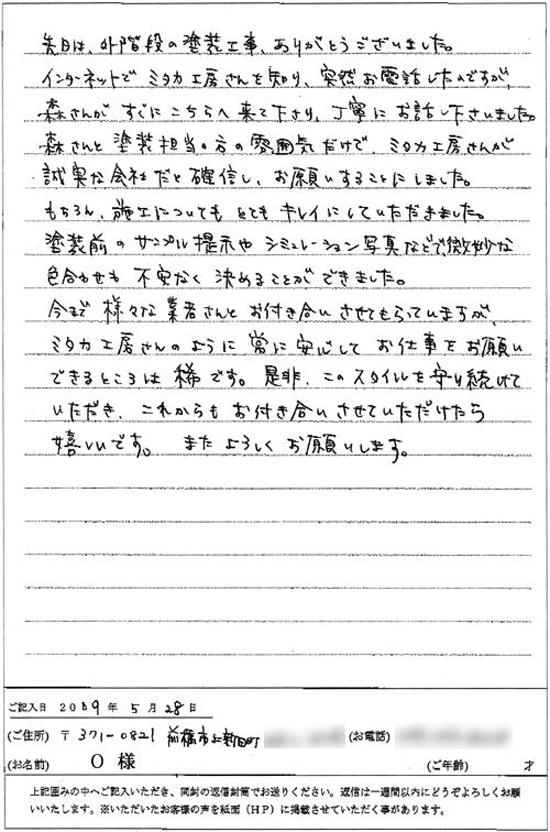 先日は、外階段の塗装工事、ありがとうございました。
インターネットでミタカ工房さんを知り、突然お電話したのですが、
森さんがすぐにこちらへ来て下さり、丁寧にお話し下さいました。
森さんと塗装担当の方の雰囲気だけで、ミタカ工房さんが
誠実な会社だと確信し、お願いすることにしました。
もちろん、施工についてもとてもキレイにしていただきました。
塗装前のサンプル提示やシミュレーション写真などで、微妙な
色合わせも不安なく決めることができました。
今まで様々な業者さんとお付き合いさせてもらっていますが、
ミタカ工房さんのように常に安心してお仕事をお願い
できるところは稀です。是非、このスタイルを守り続けて
いただき、これからもお付き合いさせていただけたら
嬉しいです。またよろしくお願いします。
ご記入日 2009年5月28日
(ご住所) 〒371-0821 前橋市上新田町 (お電話)
(お名前) O 様 (ご年齢) 才
上記囲みの中へご記入いただき、同封の返信封筒でお送りください。返信は一週間以内にどうぞよろしくお願
いいたします。※いただいたお客様の声を紙面(HP)に掲載させていただく事があります。